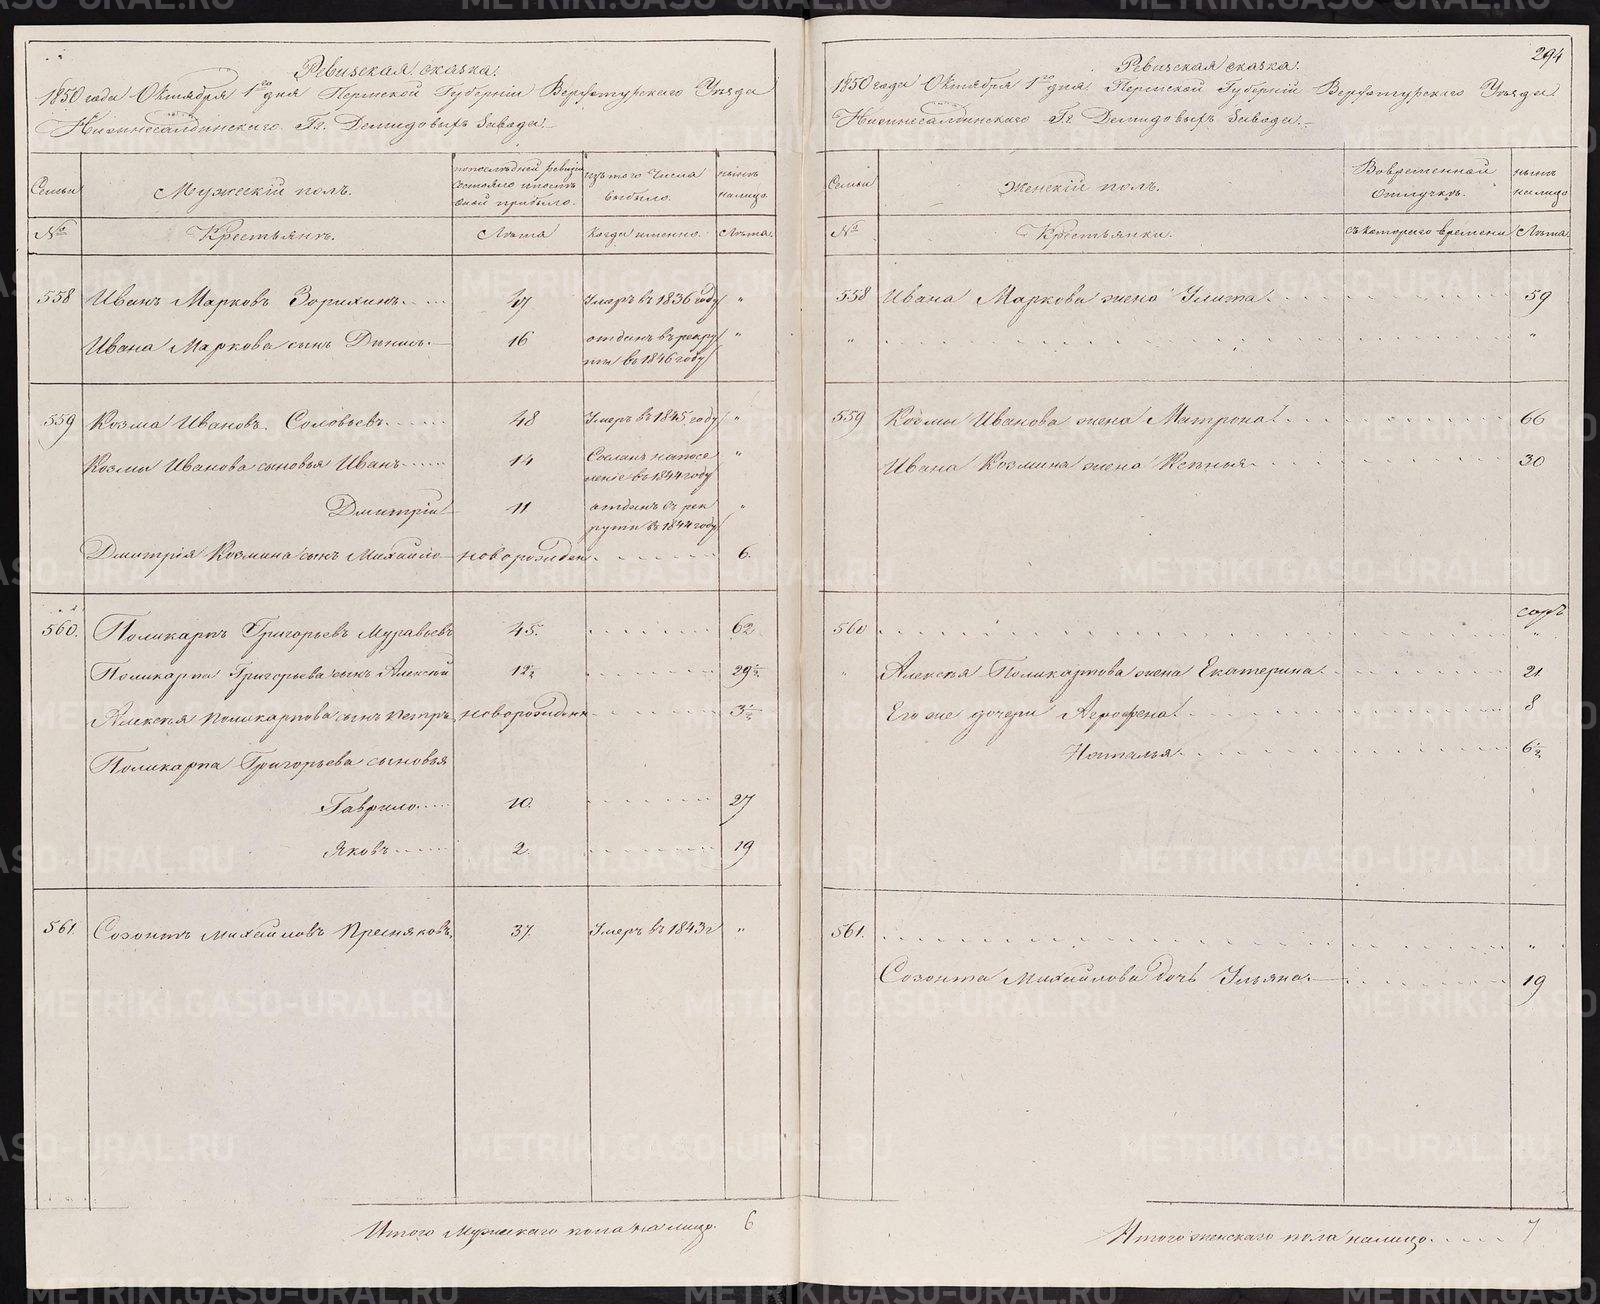 Ревизская сказка.
1850 года Октября 1го дня Пермской Губерніи Верхотурскаго Уѣзда
Нижнесалдинскаго Гг. Демидовыхъ Завода.
Семьи
Мужескій полъ.
по послѣдней ревизіи состояло и послѣ оной прибыло.
изъ того числа выбыло.
нынѣ на лицо.
№
Крестьянъ.
Лѣта
Когда именно.
Лѣта.
558 Иванъ Марковъ Зорихинъ 47 Умеръ въ 1836 году "
Ивана Маркова сынъ 16 отданъ въ рекру "
ты въ 1846 году
559 Козма Ивановъ Соловьевъ 48 Умеръ въ 1845 году "
Козмы Иванова сыновья Иванъ 14 Сосланъ на посе "
леніе въ 1844 году
Дмитрій 11 отданъ въ рек "
руты въ 1844 году
Дмитрія Козмина сынъ Михайло новорожден. 6.
560. Поликарпъ Григорьевъ Муравьевъ 45. 62
Поликарпа Григорьева сынъ Алексѣй 12½ 29½
Алексѣя Поликарпова сынъ Петръ новорожденн 3½
Поликарпа Григорьева сыновья
Гаврило 10. 27
Яковъ 2. 19
561. Созонтъ Михайловъ Пресняковъ. 37. Умеръ въ 1843 г "
Итого Мужескаго пола на лицо. 6
294
Ревизская сказка.
1850 года Октября 1го дня Пермской Губерніи Верхотурскаго Уѣзда
Нижнесалдинскаго Гг. Демидовыхъ Завода.
Семьи
Женскій полъ.
Во временной отлучкѣ.
нынѣ на лицо
№
Крестьянки.
съ котораго времени
Лѣта.
558 Ивана Маркова жена Улита 59
" "
559 Козмы Иванова жена Матрона 66
Ивана Козмина жена Ксенья 30
560 "
" Алексѣя Поликарпова жена Екатерина 21
Его же дочери Аграфена 8
Наталья 6½
561. "
Созонта Михайлова дочь Ульяна 19
Итого женскаго пола на лицо 7
METRIKI.GASO-URAL.RU